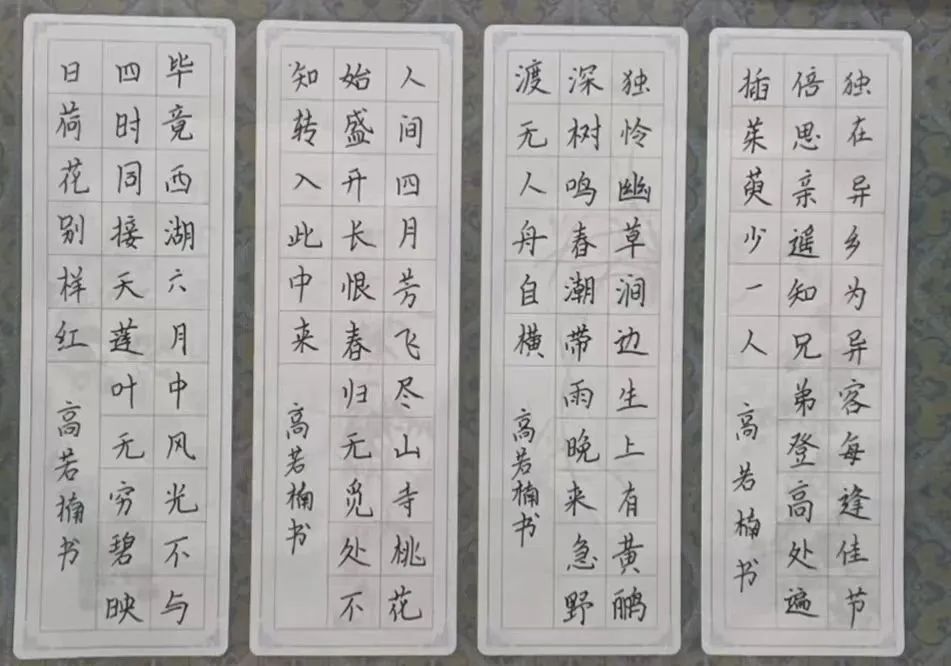 毕竟西湖六月中风光不与
四时同接天莲叶无穷碧映
日荷花别样红
高若楠书
人间四月芳飞尽山寺桃花
始盛开长恨春归无觅处不
知转入此中来
高若楠书
独怜幽草涧边生上有黄鹂
深树鸣春潮带雨晚来急野
渡无人舟自横
高若楠书
独在异乡为异客每逢佳节
倍思亲遥知兄弟登高处遍
插茱萸少一人
高若楠书